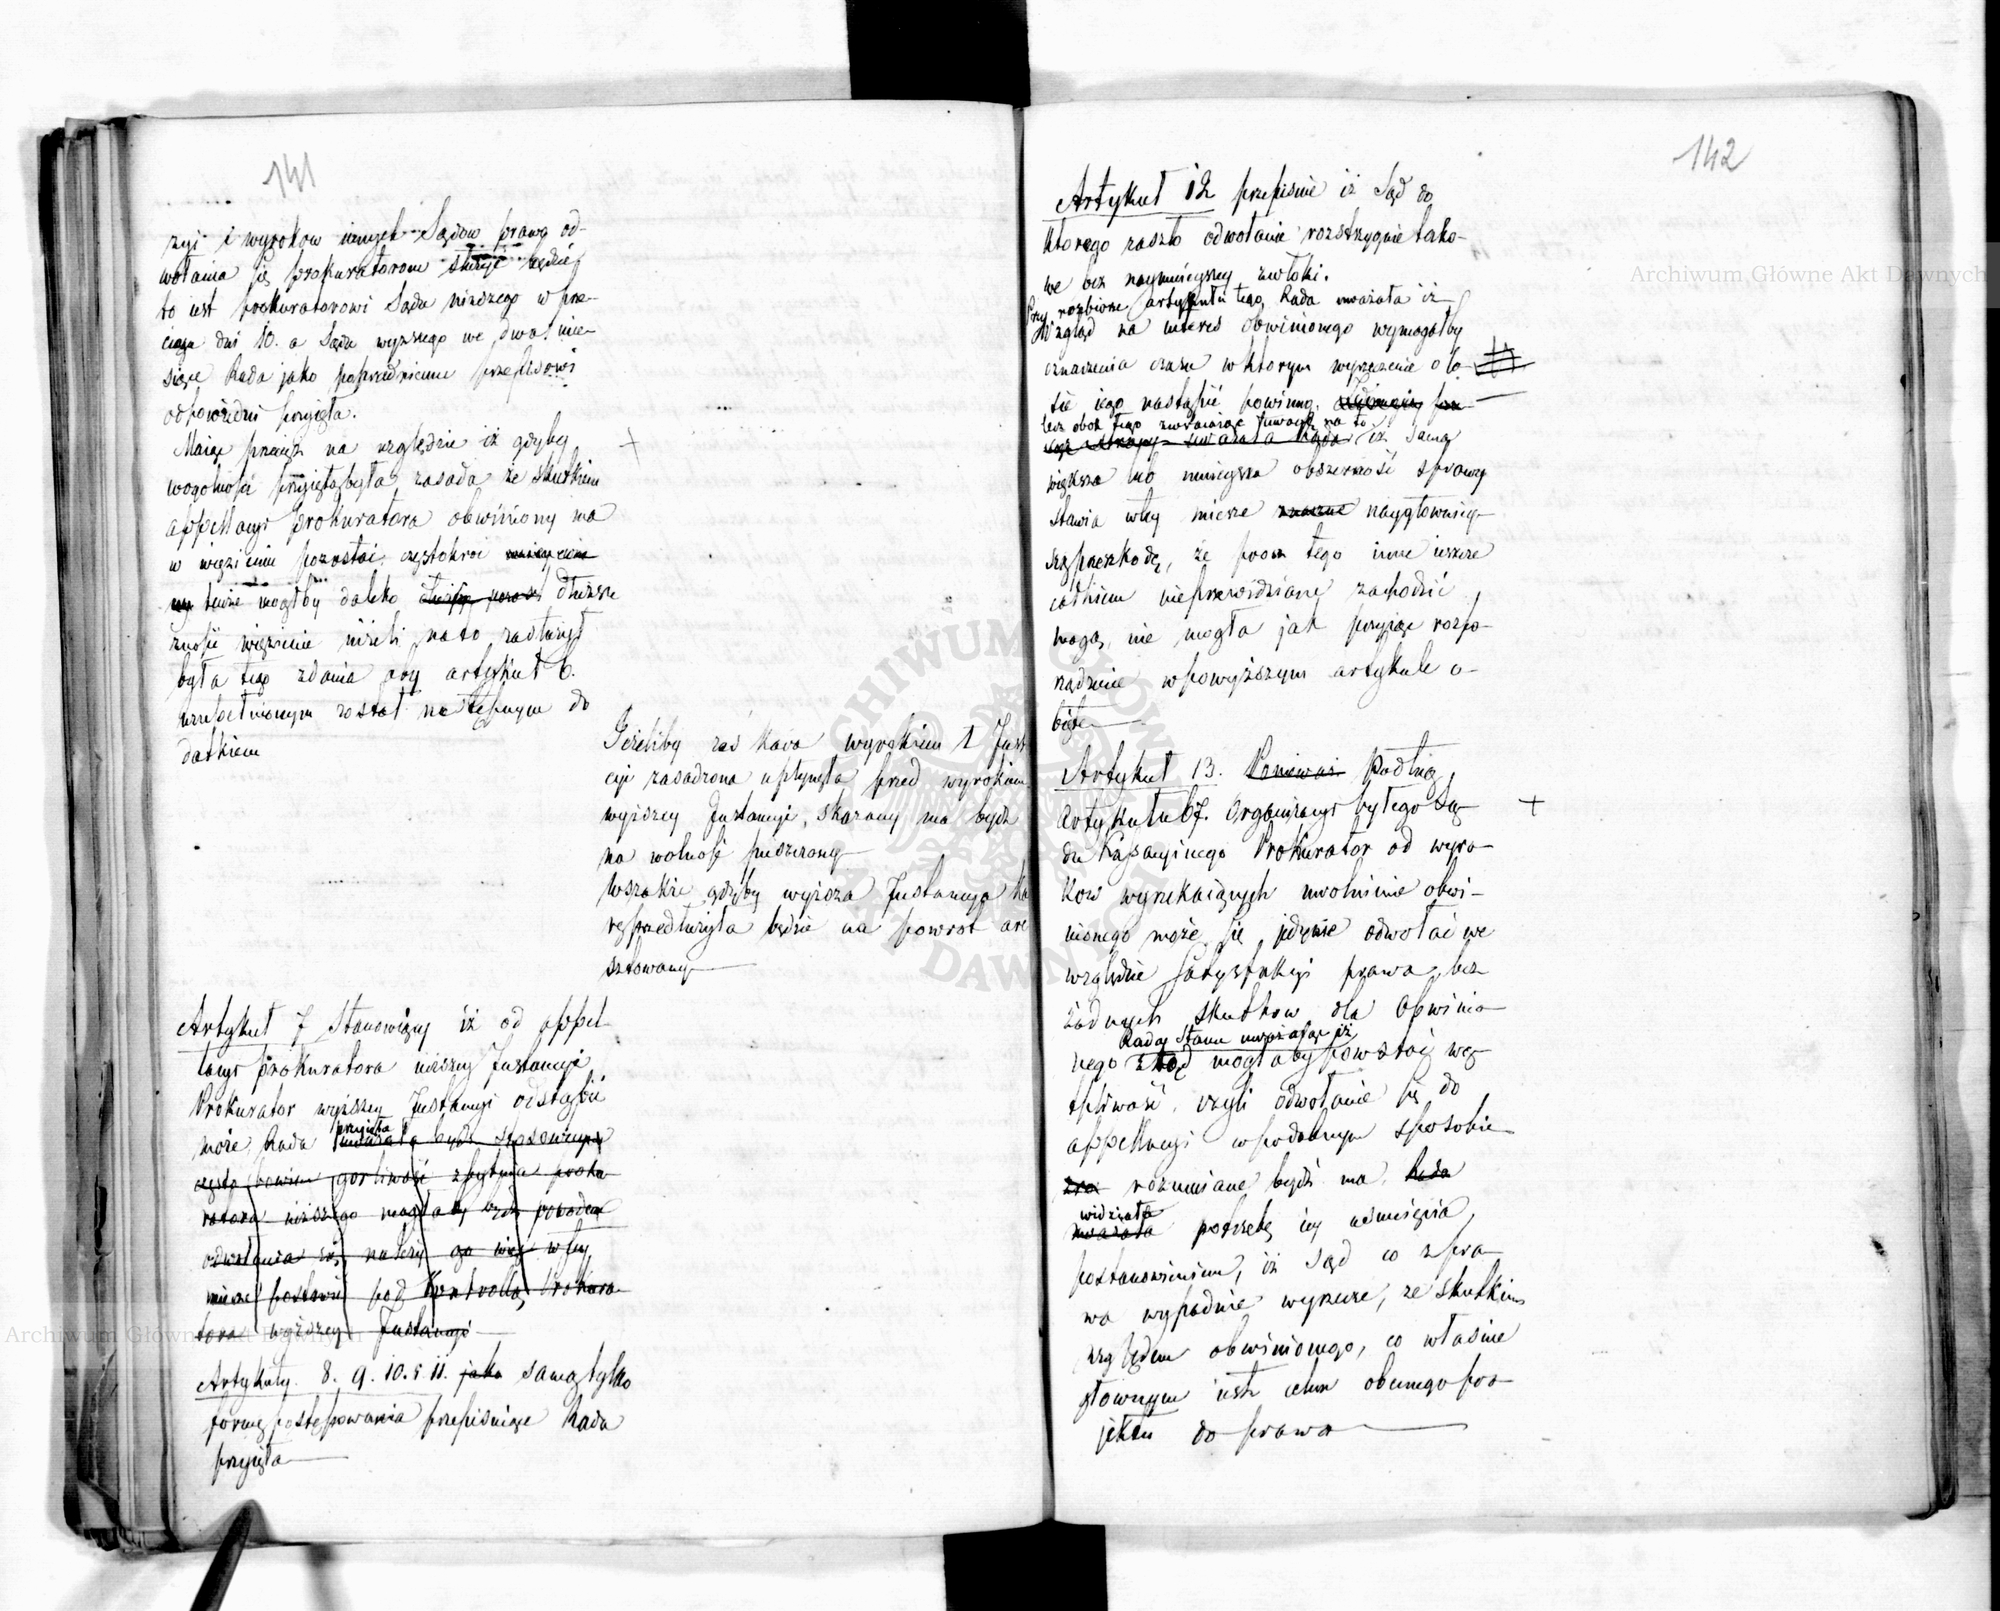 141
zyi i wyrokow innych Sądow prawo od-
wołania się prokuratorom służyć będzie
to iest prokuratorowi Sądu niższego w prze-
ciągu dni 10. a Sądu wyższego we dwa mie-
siące Rada jako poprzedniemu przepisowi
odpowiedni przyięła.
Maiąc przecież na względzie iż gdyby
wogolności przyiętą była zasada że skutkiem
appellacyi Prokuratora obwiniony ma
w więzieniu pozostać częstokroć
tenże mogłby daleko dłuższe
znosić więzienie niżeli na to zasłużył
była tego zdania aby artykuł 6.
uzupełnionym został następnym do
datkiem
Jeżeliby zaś kara wyrokiem 1 Inst-
cyi zasądzona upłynęła przed wyrokiem
wyższey Instancyi, skazany ma bydź
na wolność puszczony
Wszakże gdyby wyższa Instancya ka
rę przedłużyła będzie na powrot are
sztowany
Artykuł 7 stanowiący iż od appel-
lacyi prokuratora niższey Instancyi
Prokurator wyższey Instancyi odstąpić
może, Rada przyięła uważała bydź stosownym
często bowiem gorliwość zbytnia proku
ratora niższego mogłaby bydź powodem
odwołania się, należy go więc w tey
mierze postawić pod Kontrollą Prokura-
tora wyższey Instancyi
Artykuły 8. 9. 10. i 11. jako samą tylko
formę postępowania przepisuiące Rada
przyięła
142
Artykuł 12 przepisuie iż Sąd do
ktorego zaszło odwołanie rozstrzygnie tako-
we bez naymnieyszey zwłoki.
Przy rozbiorze artykułu tego, Rada uważała iż
Wzgląd na interes obwinionego wymagałby
oznaczenia czasu w ktorym wyrzeczenie o lo-
sie iego nastąpić powinno.
lecz obok tego zwracaiąc uwagę na to
uważała Rada iż sama
większa lub mnieysza obszerność sprawy
stawia w tey mierze znaczne naygłowniey-
szą przeszkodę, że procz tego inne ieszcze
całkiem nieprzewidziane zachodzić
mogą, nie mogła jak przyiąć rozpo-
rządzenie w powyższym artykule o-
bięte
Artykuł 13. Ponieważ Podług
Artykułu 67. Organizacyi byłego Są-
du Kassacyinego Prokurator od wyro-
kow wyrzekaiących uwolnienie obwi-
nionego może się jedynie odwołać we
względzie satysfakcyi prawa, bez
żadnych skutkow dla Obwinio-
Rada Stanu uważaiąc iż
nego ztąd mogłaby powstać wą-
tpliwość, czyli odwołanie się do
appellacyi w podobnym sposobie
rozumiane bydź ma, Rada
widziała
uważała potrzebę iey usunięcia
postanowieniem, iż Sąd co z pra-
wa wypadnie wyrzecze, ze skutkiem
względem obwinionego, co właśnie
głownym iest celem obecnego pro-
jektu do prawa
Archiwum Główne Akt Dawnych
Archiwum Główne Akt Dawnych
ARCHIWUM GŁÓWNE AKT DAWNYCH